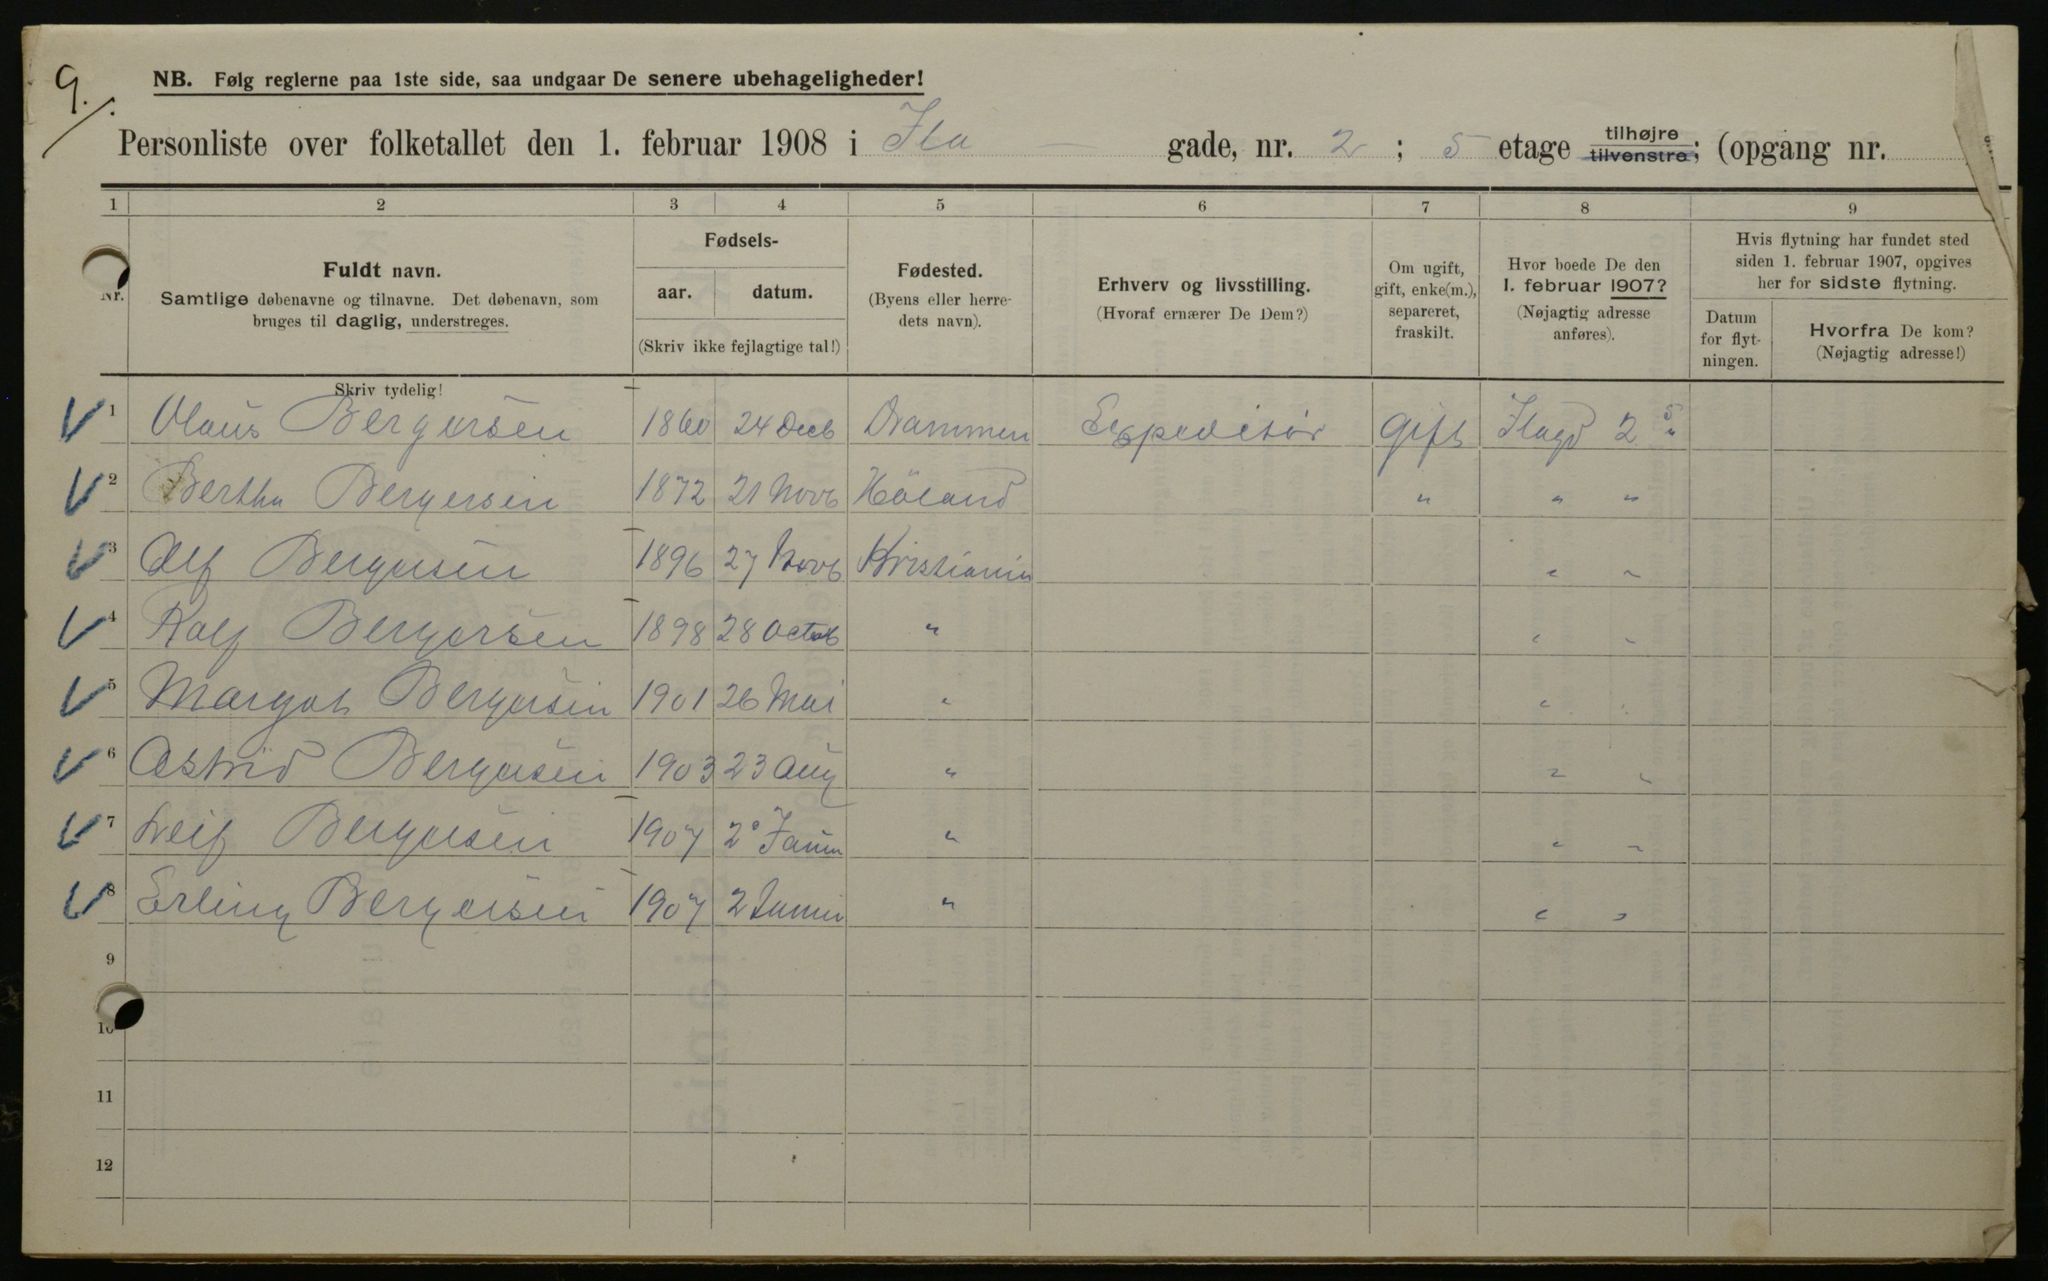 9./.
NB. Følg reglerne paa 1ste side, saa undgaar De senere ubehageligheder!
Personliste over folketallet den 1. februar 1908 i Ila — gade, nr. 2 ; 5 etage tilhøjre tilvenstre; (opgang nr.
1 2 3 4 5 6 7 8 9
Nr.
Fuldt navn.
Samtlige døbenavne og tilnavne. Det døbenavn, som
bruges til daglig, understreges.
Fødsels-
aar. datum.
(Skriv ikke fejlagtige tal!)
Fødested.
(Byens eller herre-
dets navn).
Erhverv og livsstilling.
(Hvoraf ernærer De Dem?)
Om ugift,
gift, enke(m.),
separeret,
fraskilt.
Hvor boede De den
1. februar 1907?
(Nøjagtig adresse
anføres).
Hvis flytning har fundet sted
siden 1. februar 1907, opgives
her for sidste flytning.
Datum
for flyt-
ningen.
Hvorfra De kom?
(Nøjagtig adresse!)
Skriv tydelig!
1 Olaus Bergersen 1860 24 Decb Drammen Expeditør gift Ilagd 2 5 "
2 Bertha Bergersen 1872 21 Novb Höland " " "
3 Alf Bergersen 1896 27 Novb Kristiania " "
4 Rolf Bergersen 1898 28 Octob " " "
5 Margot Bergersen 1901 26 Mai " " "
6 Astrid Bergersen 1903 23 Aug " " "
7 Leif Bergersen 1907 2 " " "
8 Erling Bergersen 1907 2 " " "
9
10
11
12